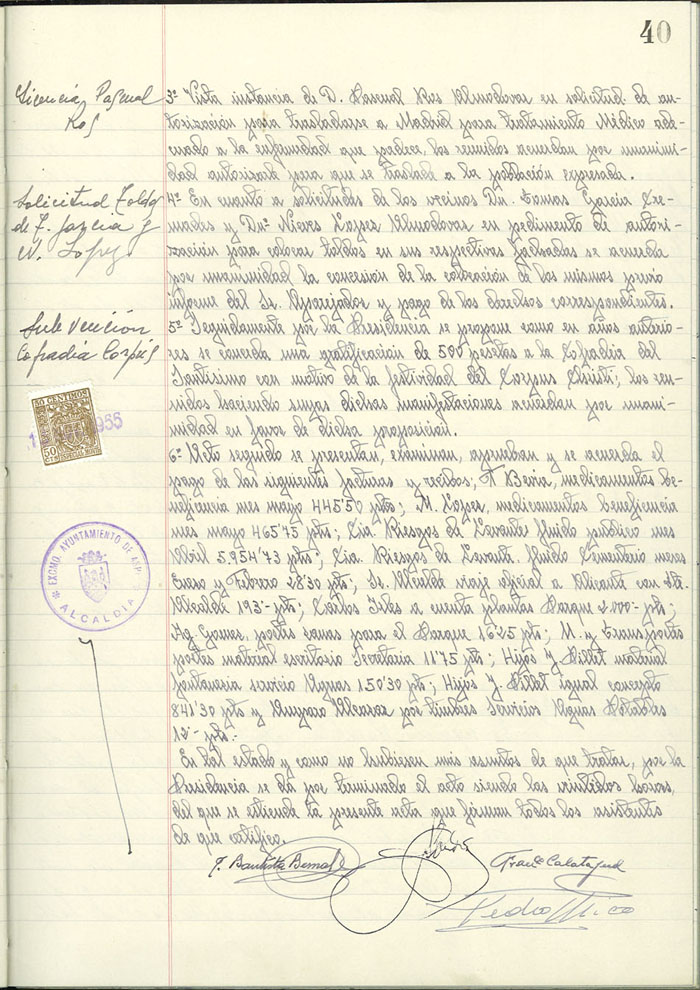 40
Licencia Pascual
Ros
3º Vista instancia de D. Pascual Ros Almodovar en solicitud de au-
torización para trasladarse a Madrid para tratamiento Médico ade-
cuado a la enfermedad que padece los reunidos acuerdan por unanimi-
dad autorizarle para que se traslade a la población expresada.
Solicitud Toldos
de T. García y
N. Lopez
4º En cuanto a solicitudes de los vecinos Dn. Tomas Garcia Cre-
mades y Dnª Nieves Lopez Almodovar en pedimento de autori-
zación para colocar toldos en sus respectivas fachadas se acuerda
por unanimidad la concesion de la colocación de los mismos previo
informe del Sr. Aparejador y pago de los derechos correspondientes.
Subvención
Cofradia Corpus
5º Seguidamente por la Presidencia se propone como en años anterio-
res se conceda una gratificación de 500 pesetas a la Cofradia del
Santisimo con motivo de la festividad del Corpus Christi; los reu-
nidos haciendo suyas dichas manifestaciones acuerdan por unani-
midad en favor de dicha proposicion.
50 CENTIMOS
1955
6º Acto seguido se presentan, examinan, aprueban y se acuerda el
pago de las siguientes facturas y recibos; A Beria, medicamentos be-
neficencia mes mayo 445'50 ptas; M. Lopez, medicamentos beneficencia
mes mayo 465'75 pts; Cia. Riegos de Levante fluido publico mes
Abril 5.954'73 pts; Cia. Riegos de Levante fluido Cementerio meses
Enero y Febrero 28'30 pts; Sr. Alcalde viaje oficial a Alicante con Ste.
Alcalde 193'- pts; Carlos a cuenta plantas Parque 2.000'- pts;
Gomez, portes para el Parque pts; M. y Transportes
portes material escritorio Secretaria 11'75 pts; Hijos J. Billet material
fontaneria servicio Aguas 150'30 pts; Hijos J. Billet igual concepto
841'30 pts y Amparo Alcaraz por timbres Servicios Aguas Potables
13'- pts.-
EXCMO. AYUNTAMIENTO DE
ALCALDIA
En tal estado y como no hubiesen más asuntos de que tratar, por la
Presidencia se dá por terminado el acto siendo las veintidos horas,
del que se extiende la presente acta que firman todos los asistentes
de que certifico.
J. Bautista Bernal
Franco Calatayud
Pedro Mico